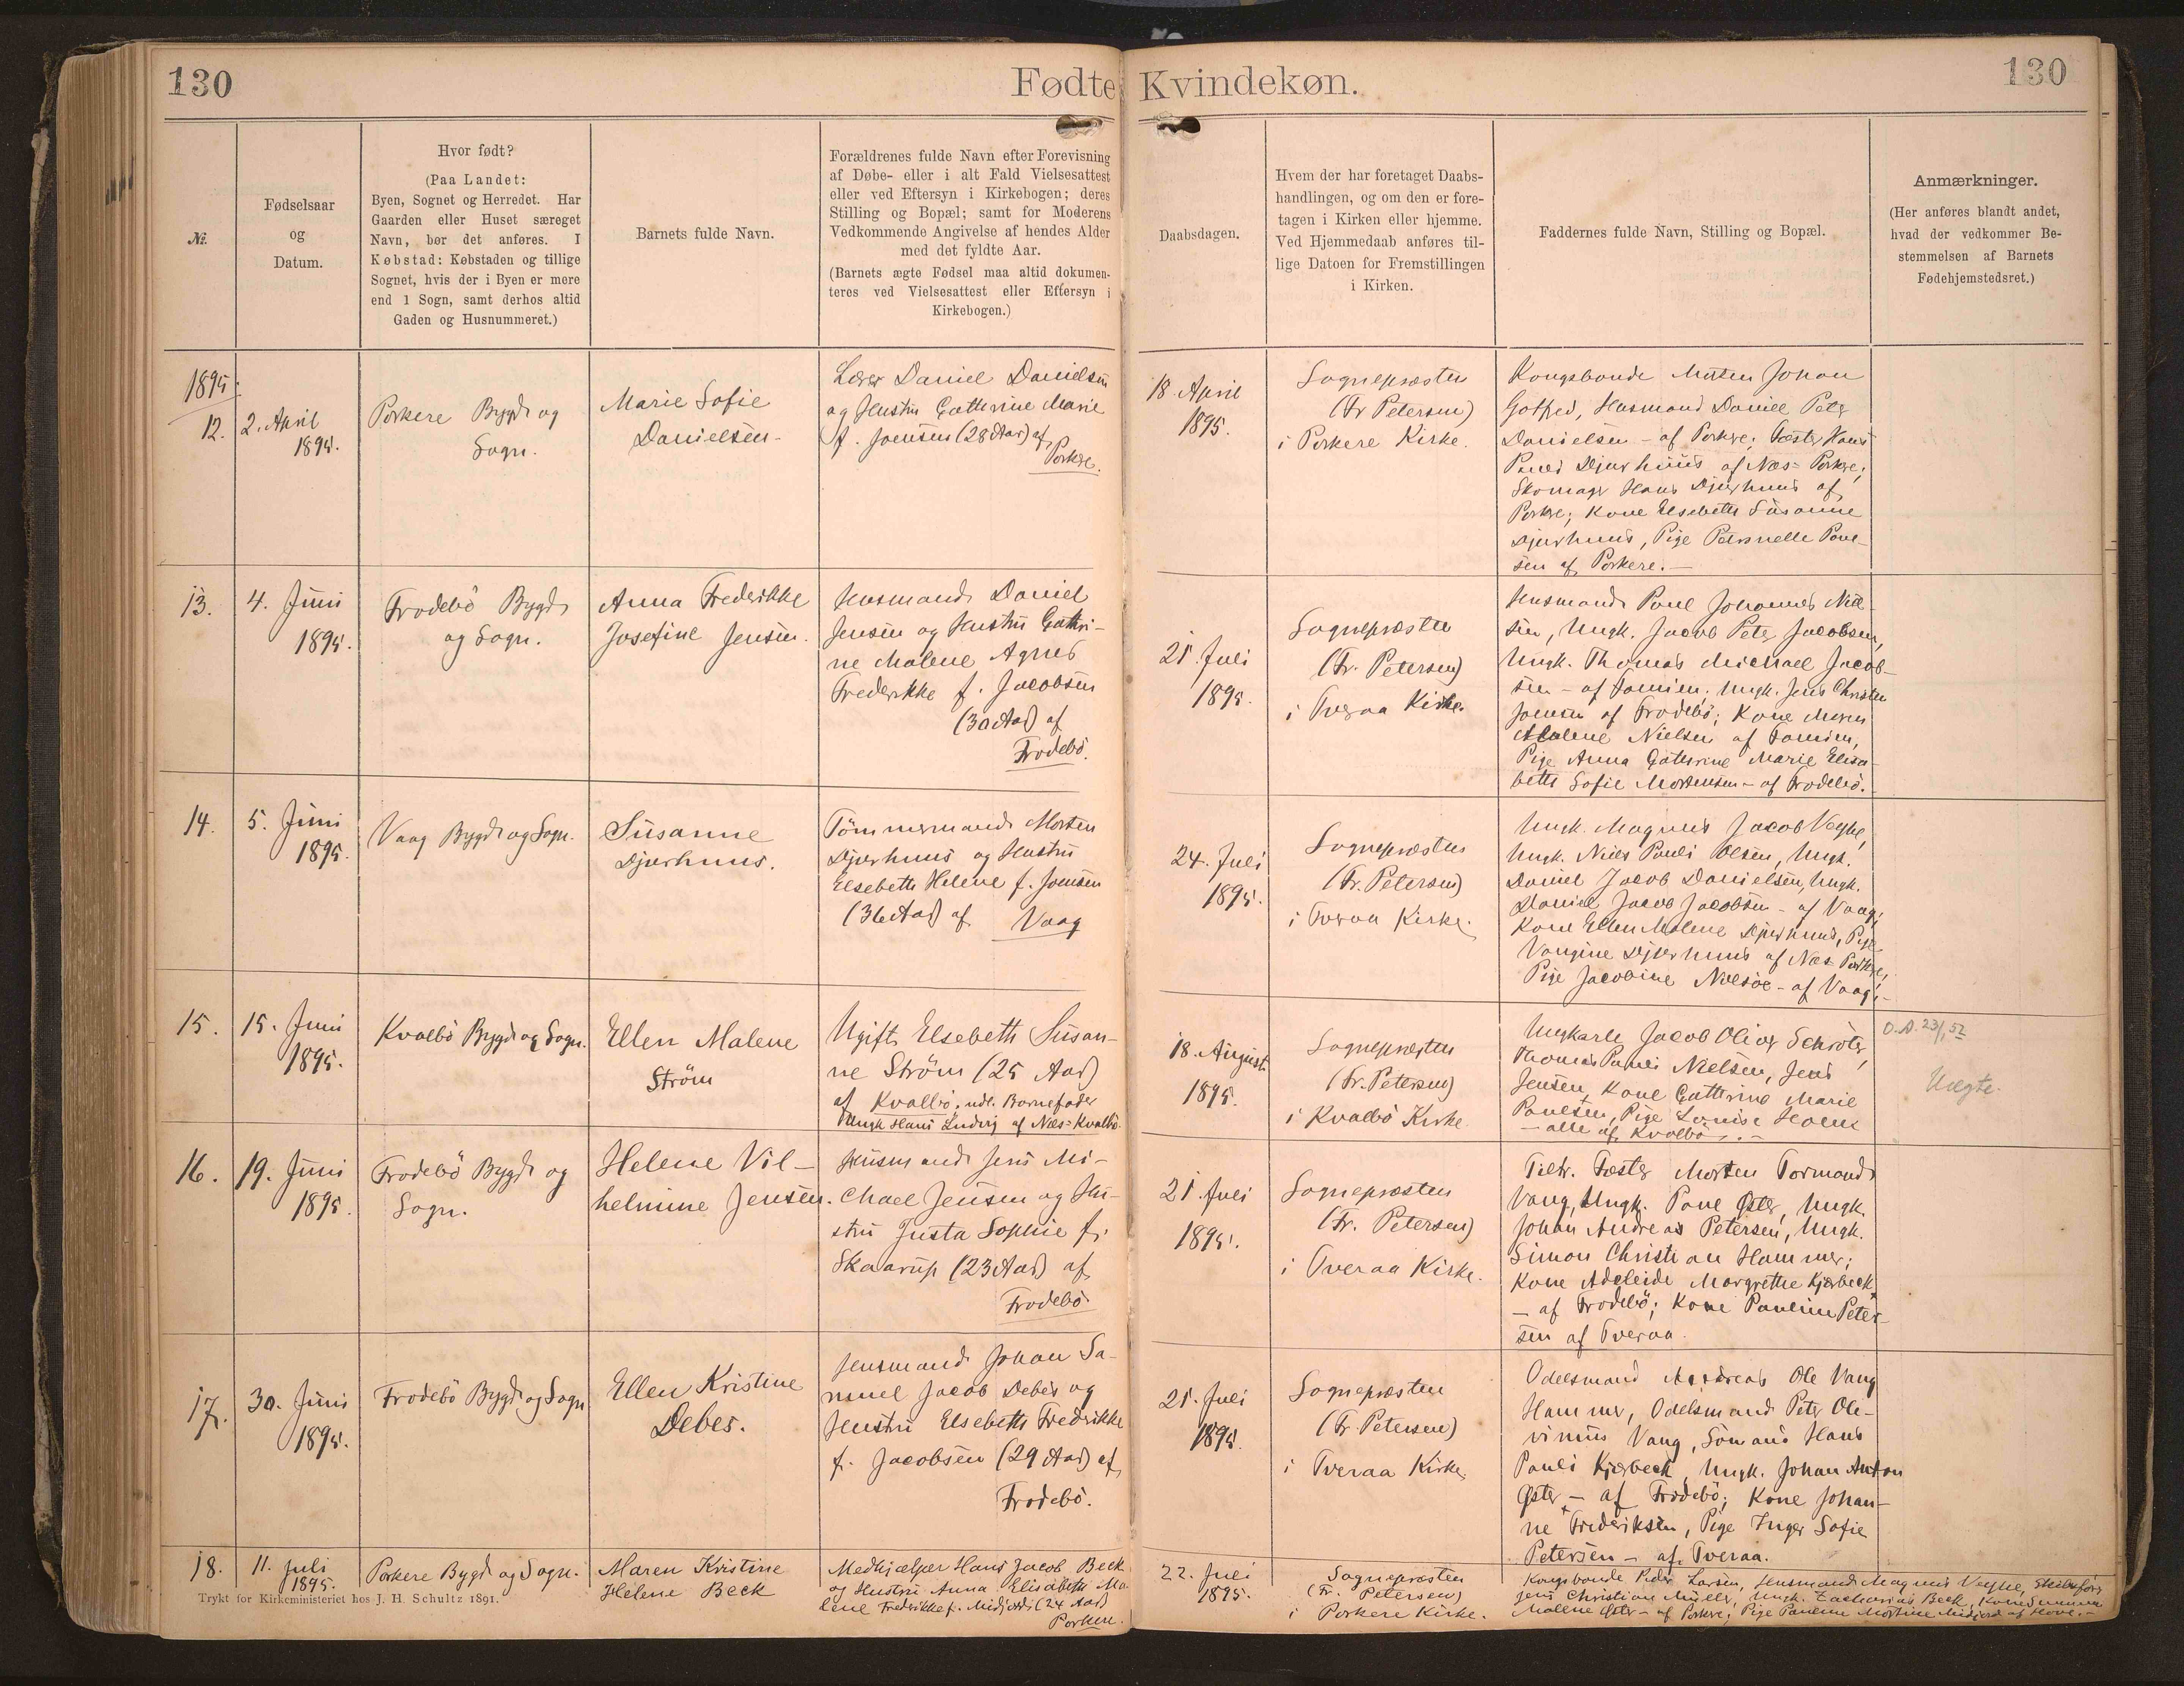 130
Fødte
Kvindekøn.
130
№.
Fødselsaar
og
Datum.
Hvor født?
(Paa Landet:
Byen, Sognet og Herredet. Har
Gaarden eller Huset særeget
Navn, bør det anføres. I
Købstad: Købstaden og tillige
Sognet, hvis der i Byen er mere
end 1 Sogn, samt derhos altid
Gaden og Husnummeret.)
Barnets fulde Navn.
Forældrenes fulde Navn efter Forevisning
af Døbe- eller i alt Fald Vielsesattest
eller ved Eftersyn i Kirkebogen; deres
Stilling og Bopæl; samt for Moderens
Vedkommende Angivelse af hendes Alder
med det fyldte Aar.
(Barnets ægte Fødsel maa altid dokumen-
teres ved Vielsesattest eller Eftersyn i
Kirkebogen.)
Daabsdagen.
Hvem der har foretaget Daabs-
handlingen, og om den er fore-
tagen i Kirken eller hjemme.
Ved Hjemmedaab anføres til-
lige Datoen for Fremstillingen
i Kirken.
Faddernes fulde Navn, Stilling og Bopæl.
Anmærkninger.
(Her anføres blandt andet,
hvad der vedkommer Be-
stemmelsen af Barnets
Fødehjemstedsret.)
1895:
12.
2. April
1895.
Porkere Bygd og
Sogn.
Marie Sofie
Danielsen
Lærer Daniel Danielsen
og Hustru Cathrine Marie
f. Joensen (28 Aar) af
Porkere.
18. April
1895.
Sognepræsten
(Fr Petersen)
i Porkere Kirke.
Kongsbonde Johan
Gotfred, Husmand Daniel Peter
Danielsen - af Porkere; Fæster Hans
Poul Djurhuus af Næs-Porkere;
Skomager Hans Djurhuus af
Porkere; Kone Elsebeth Susanne
Djurhuus, Pige Petronelle Poul-
sen af Porkere.-
13.
4. Juni
1895.
Frodebö Bygd
og Sogn.
Anna Frederikke
Josefine Jensen.
Husmand Daniel
Jensen og Hustru Cathri-
ne Malene Agnes
Frederikke f. Jacobsen
(30 Aar) af
Frodebö.
21. Juli
1895.
Sognepræsten
(Fr. Petersen)
i Tveraa Kirke.
Husmand Poul Johannes Niel-
sen, Ungk. Jacob Peter Jacobsen,
Ungk. Thomas Michael Jacob-
sen - af Famien. Ungk. Jens Christen
Joensen af Frodebö; Kone Maren
Malene Nielsen af Famien,
Pige Anna Cathrine Marie Elisa-
beth Sofie Mortensen - af Frodebö.
14.
5. Juni
1895.
Vaag Bygd og Sogn.
Susanne
Djurhuus.
Tömmermand Morten
Djurhuus og Hustru
Elsebeth Helene f. Joensen
(36 Aar) af Vaag
24. Juli
1895.
Sognepræsten
(Fr. Petersen)
i Tveraa Kirke.
Ungk. Magnus Jacob Veyhe,
Ungk. Niels Pauli Olsen, Ungk.
Daniel Jacob Danielsen, Ungk.
Daniel Jacob Jacobsen - af Vaag;
Kone Ellen Malene Djurhuus, Pige
Vangine Djurhuus af Næs-Porkere,
Pige Jacobine - af Vaag.-
15.
15. Juni
1895.
Kvalbö Bygd og Sogn.
Ellen Malene
Ström
Ugift Elsebeth Susan-
ne Ström (25 Aar)
af Kvalbö. udl. Barnefader
Ungk Hans Ludvig af Næs-Kvalbö.
18. August
1895.
Sognepræsten
(Fr. Petersen)
i Kvalbö Kirke
Ungkarle Jacob Oliver Schröter,
Thomas Pauli Nielsen, Jens
Jensen, Kone Cathrine Marie
Poulsen, Pige Louise Holm
- alle af Kvalbö.-
D.A. 23/1 52
Uægte.
16.
19. Juni
1895.
Frodebö Bygd og
Sogn.
Helene Vil-
helmine Jensen.
Husmand Jens Mi-
chael Jensen og Hu-
stru Justa Sophie f.
Skaarup (23 Aar) af
Frodebö
21. Juli
1895.
Sognepræsten
(Fr. Petersen)
i Tveraa Kirke.
Fæster Morten Tormand
Vang, Ungk. Poul Öster, Ungk.
Johan Andreas Petersen, Ungk.
Simon Christian Hammer;
Kone Adeleide Margrethe Kjærbeck
- af Frodebö; Kone Pauline Peter-
sen af Tveraa.
17.
30. Juni
1895.
Frodebö Bygd og Sogn
Ellen Kristine
Debes.
Husmand Johan Sa-
muel Jacob Debes og
Hustru Elsebeth Fredrikke
f. Jacobsen (29 Aar) af
Frodebö.
21. Juli
1895.
Sognepræsten
(Fr Petersen)
i Tveraa Kirke.
Odelsmand Andreas Ole Vang
Hammer, Odelsmand Peter Ole-
vinus Vang, Sömand Hans
Pauli Kjærbeck, Ungk. Johan Anton
Öster - af Frodebö; Kone Johan-
ne Frederiksen, Pige Inger Sofie
Petersen - af Tveraa.
18.
11. Juli
1895.
Porkere Bygd og Sogn.
Maren Kristine
Helene Beck
Medhjælper Hans Jacob Beck
og Hustru Anna Elisabeth Ma-
lene Fredrikke f. Midjord (24 Aar)
Porkere.
22. Juli
1895.
Sognepræsten
(Fr. Petersen)
i Porkere Kirke.
Kongsbonde Peder Larsen, Husmand Magnus Veyhe, Skibsförer
Jens Christian Müller, Ungk. Zacharias Beck, Kone
Malene Öster - af Porkere; Pige Pauline Mortine Midjord af Hove.-
Trykt for Kirkeministeriet hos J. H. Schultz 1891.